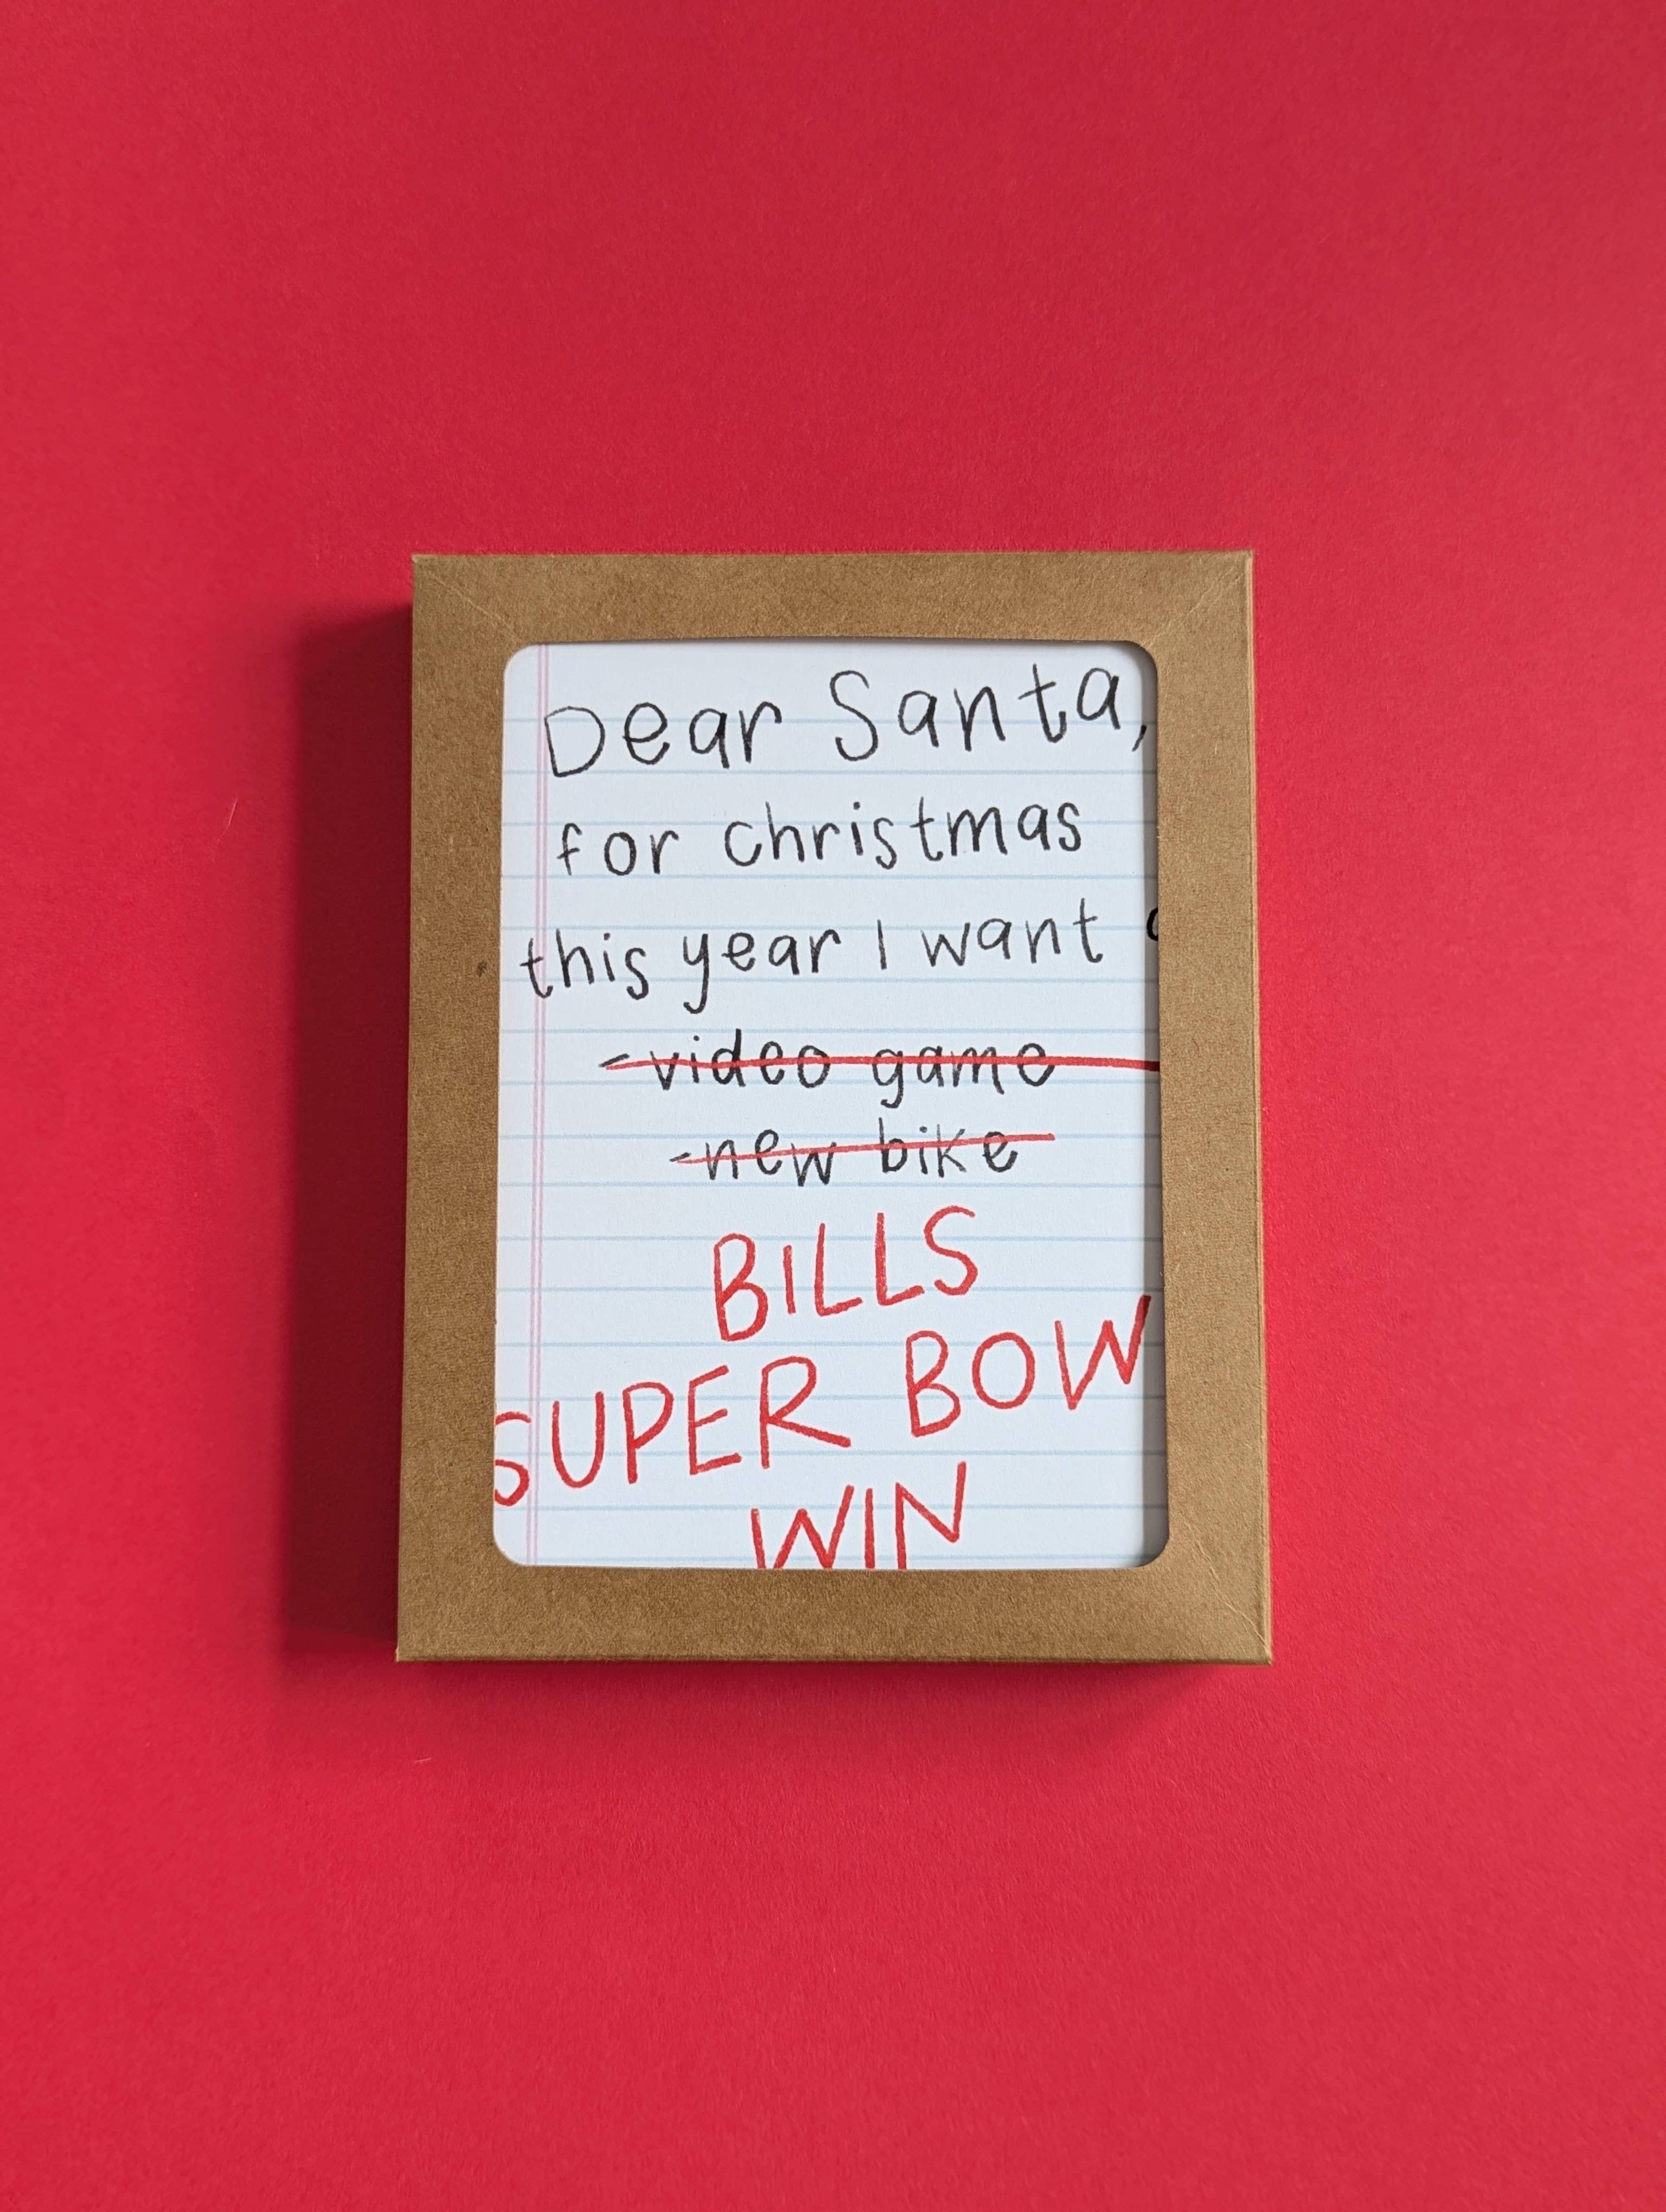 Dear Santa,
for christmas
this year I want a
- video game
- new bike
BILLS
SUPER BOW
WIN